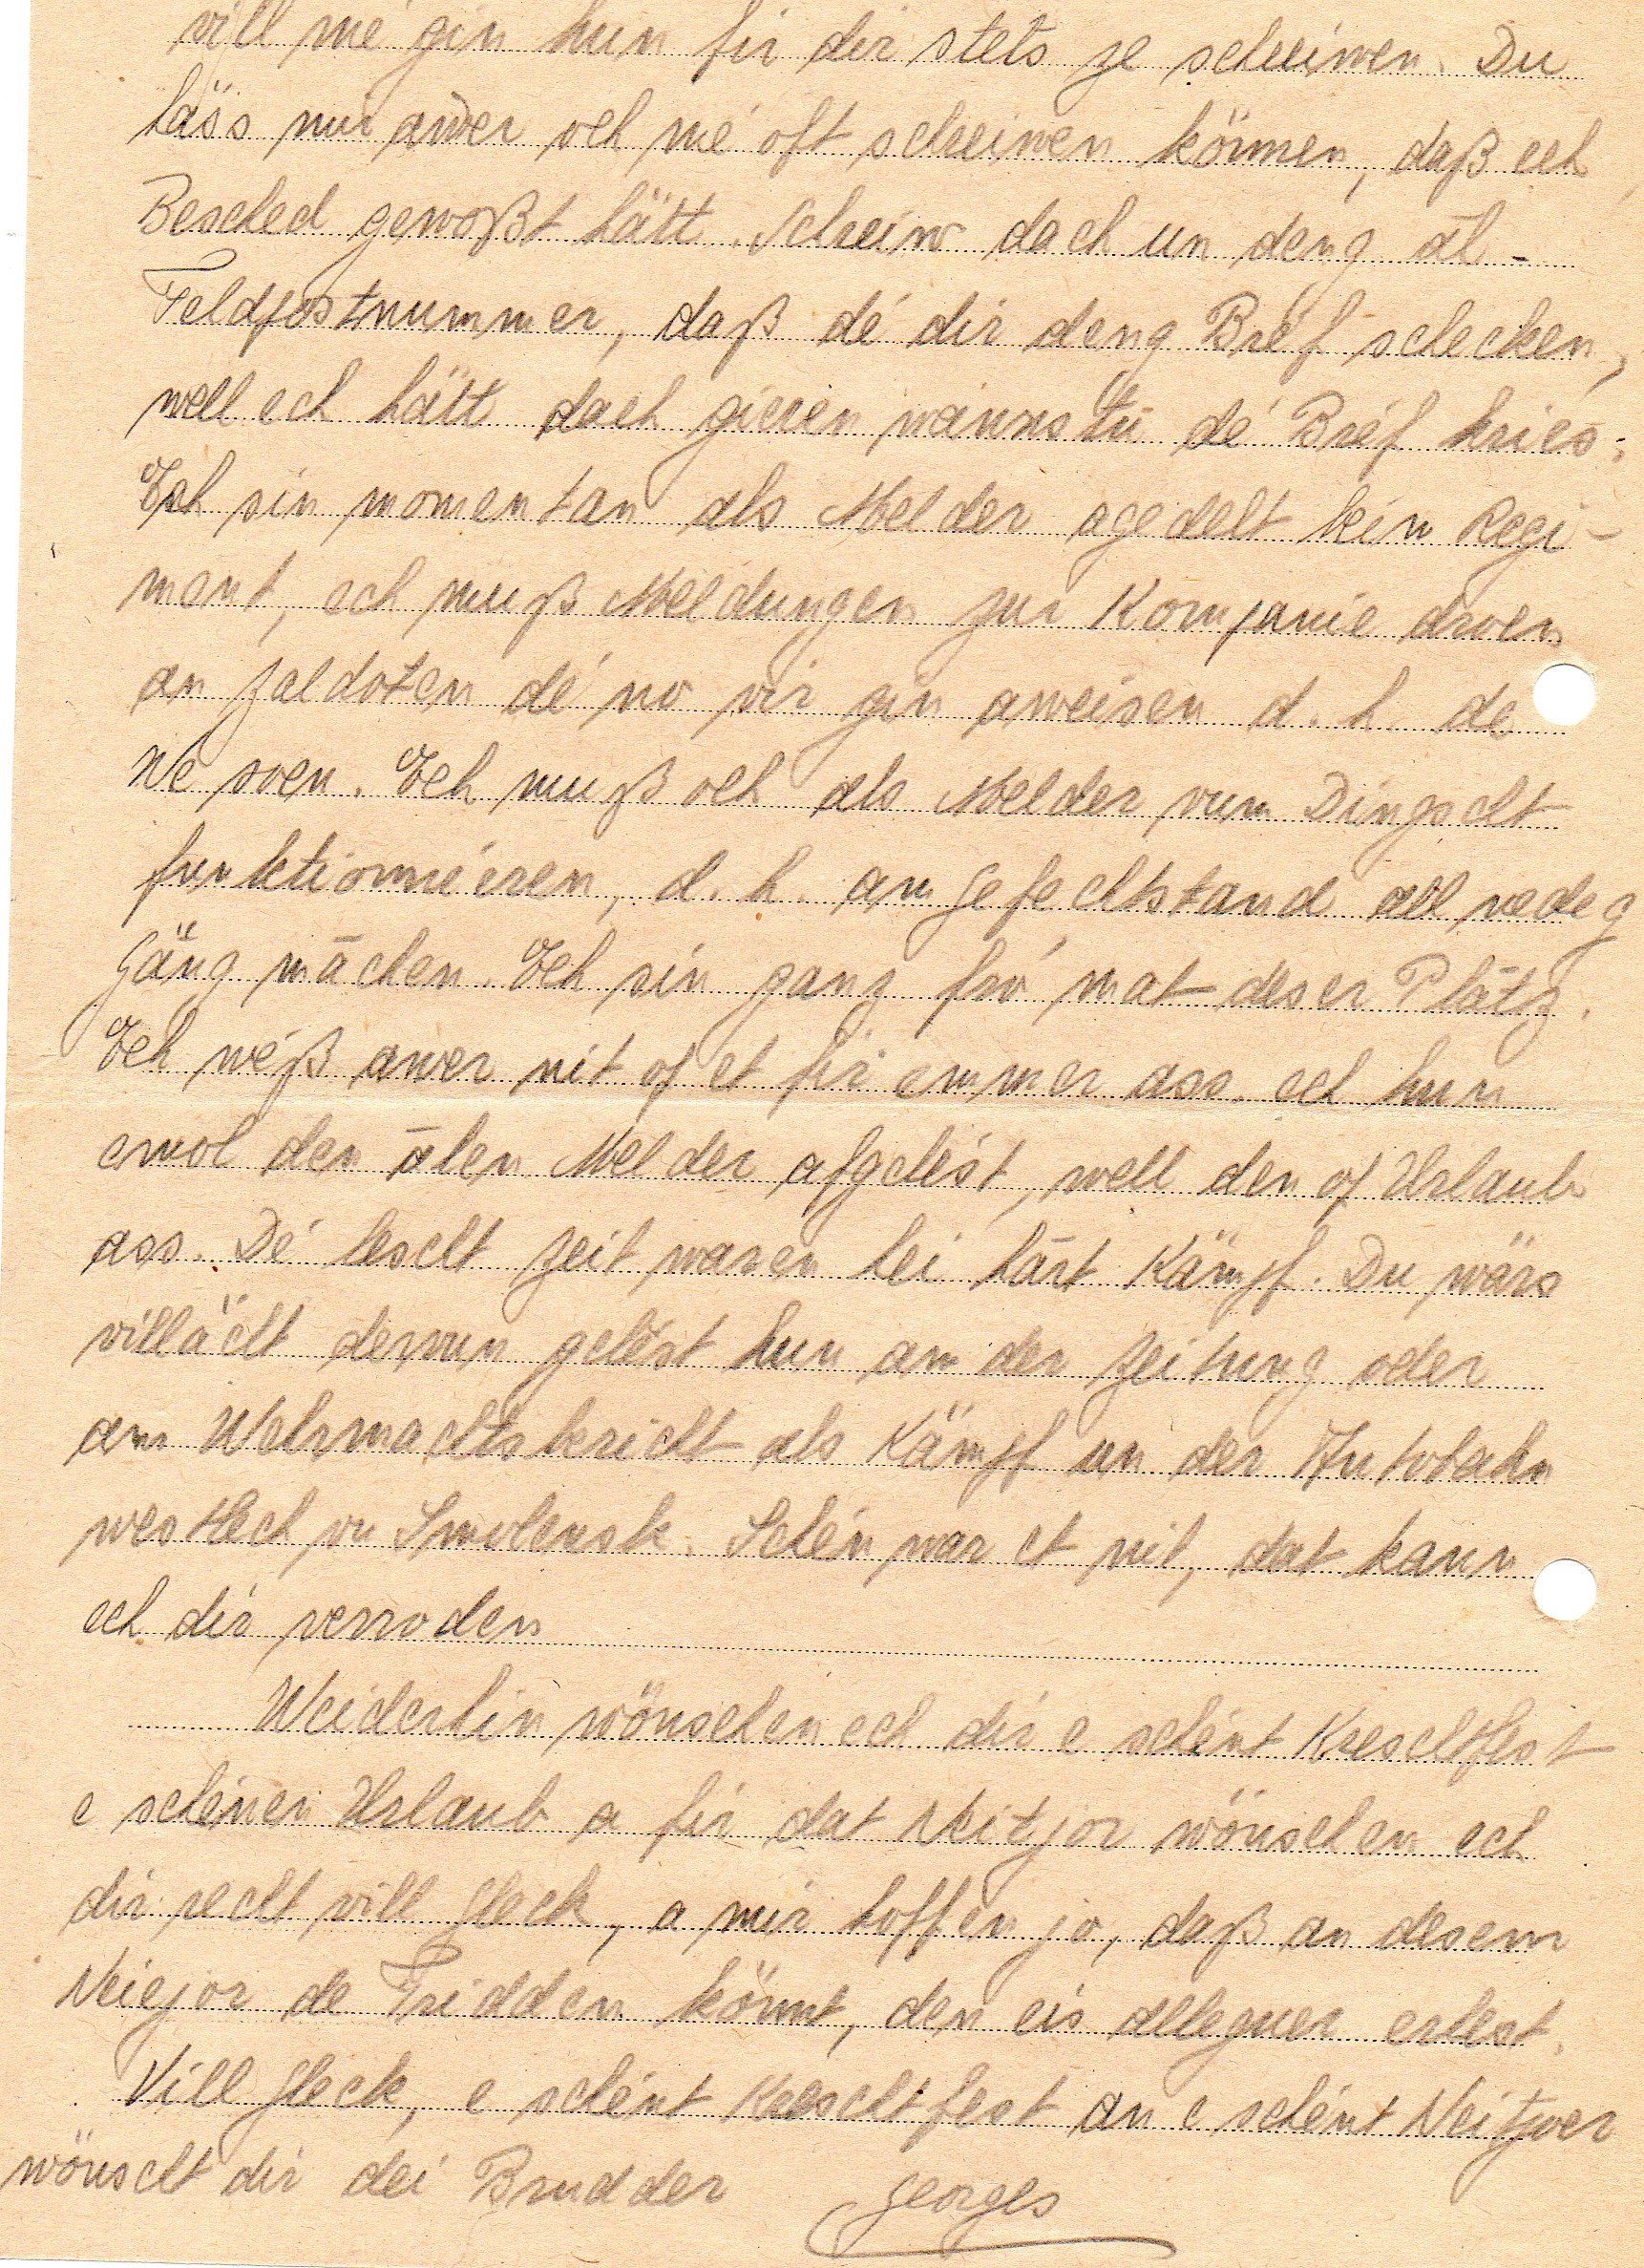 vill mé gin hun fir dir stets ze schreiwen. Du
häss mir awer och mé oft schreiwen können, daß ech
Besched gewoßt hätt. Schreiw dach un deng al
Feldpostnummer, daß dé dir deng Bréf schecken,
well ech hätt dach gieren wannstu dé Bréf kriés.
Ech sin momentan als Melder agedelt beim Regi-
ment, ech muß Meldungen zur Kompanie droen
an Zaldoten dé no vir gin aweisen d. h. de
Wé soen. Ech muß och als Melder vum Dingscht
funktionnéieren, d. h. am Gefechtstand all nedeg
Gäng māchen. Ech sin ganz fro' mat deser Plātz.
Ech wéß awer nit of et fir emmer ass, ech hun
emol den ālen Melder afgelést, well den of Urlaub
ass. Dé lescht Zeit waren hei hārt Kämpf. Du wärs
villächt dervun gelést hun an der Zeitung oder
am Wehrmachtsbericht als Kämpf un der Autobahn
westlech vu Smolensk. Schén war et nit, dat kann
ech dir verroden
Weiderhin wönschen ech dir e schént Kreschtfest
e schénen Urlaub a fir dat Neitjor wönschen ech
dir recht vill Gleck, a mir hoffen jo, daß an desem
Neiejor de Fridden könnt, den eis alleguer erlest.
Vill Gleck, e schént Kreschtfest an e schént Neitjoer
wönscht dir dei Brudder Georges